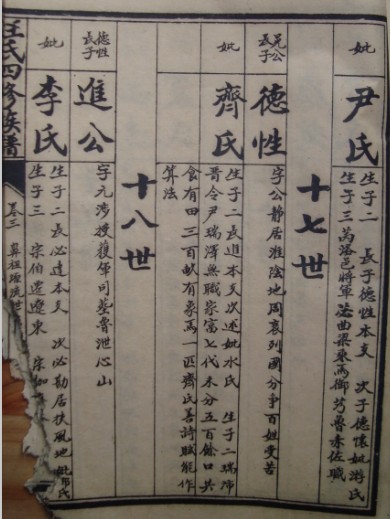 妣
尹氏
生子二 長子德性本支 次子德懷妣游氏
生子三 芮洛邑將軍 曲梁東馬御 芍魯秦佐職
十七世
兄公
長子
德性
字公靜居淮陰地周衰列國分爭百姓受苦
妣
齊氏
生子二長進本支次述妣水氏 生子二瑞沛
晉令尹瑞澤無職家富七代未分五百餘口共
食有田三百畝有象馬一匹齊氏善詩賦能作
算法
十八世
德性
長子
進公
字元涉授後 司 魯 心山
妣
李氏
生子二長必達本支 次必勤居扶風地 妣 氏
生子三 宗伯遷遼東 宗
汪氏四修族譜
卷三